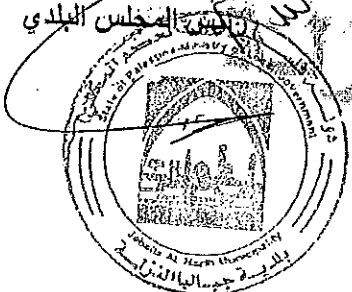 رئيس المجلس البلدي
دولة فلسطين
State of Palestine Ministry of Local Government
Jabalia Al Nazla Municipality
بلدية جباليا النزلة